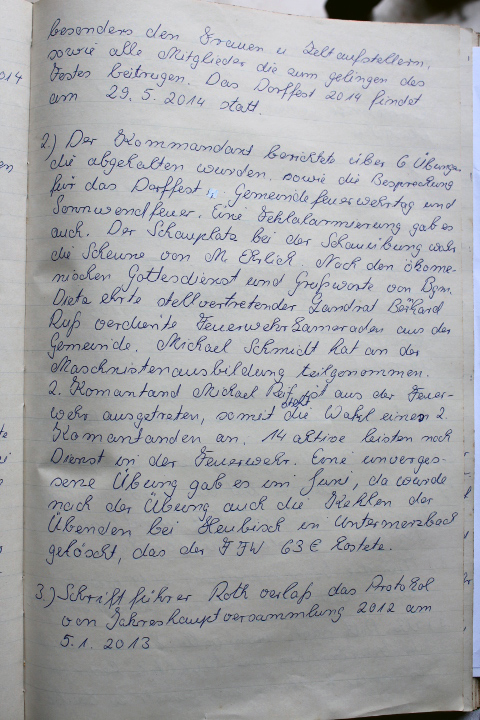 besonders den Frauen u Zeltaufstellern,
sowie alle Mitglieder die zum gelingen des
Festes beitrugen. Das Dorffest 2014 findet
am 29.5.2014 statt.
2.) Der Kommandant berichtete über 6 Übungen
die abgehalten wurden. sowie die Besprechung
für das Dorffest, Gemeindefeuerwehrtag und
Sonnwendfeuer. Eine Fehlalarmierung gab es
auch. Der Schauplatz bei der Schauübung wahr
die Scheune von M. Ehrlich. Nach den ökome-
nischen Gottesdienst und Grußworte von Bgm.
Dietz ehrte stellvertretender Landrat Bernhard
Ruß verdiente Feuerwehrkameraden aus der
Gemeinde. Michael Schmidt hat an der
Maschnistenausbildung teilgenommen.
2. Komantand Michael ist aus der Feuer-
wehr ausgetreten, somit steht die Wahl einen 2.
Komantanden an. 14 aktive leisten noch
Dienst in der Feuerwehr. Eine unverges-
sene Übung gab es im Juni, da wurde
nach der Übung auch die Kehlen der
Übenden bei Heubisch in Untermerzbach
gelöscht, das der FFW 63 € kostete.
3.) Schriftführer Roth verlaß das Protokol
von Jahreshauptversammlung 2012 am
5.1.2013
014